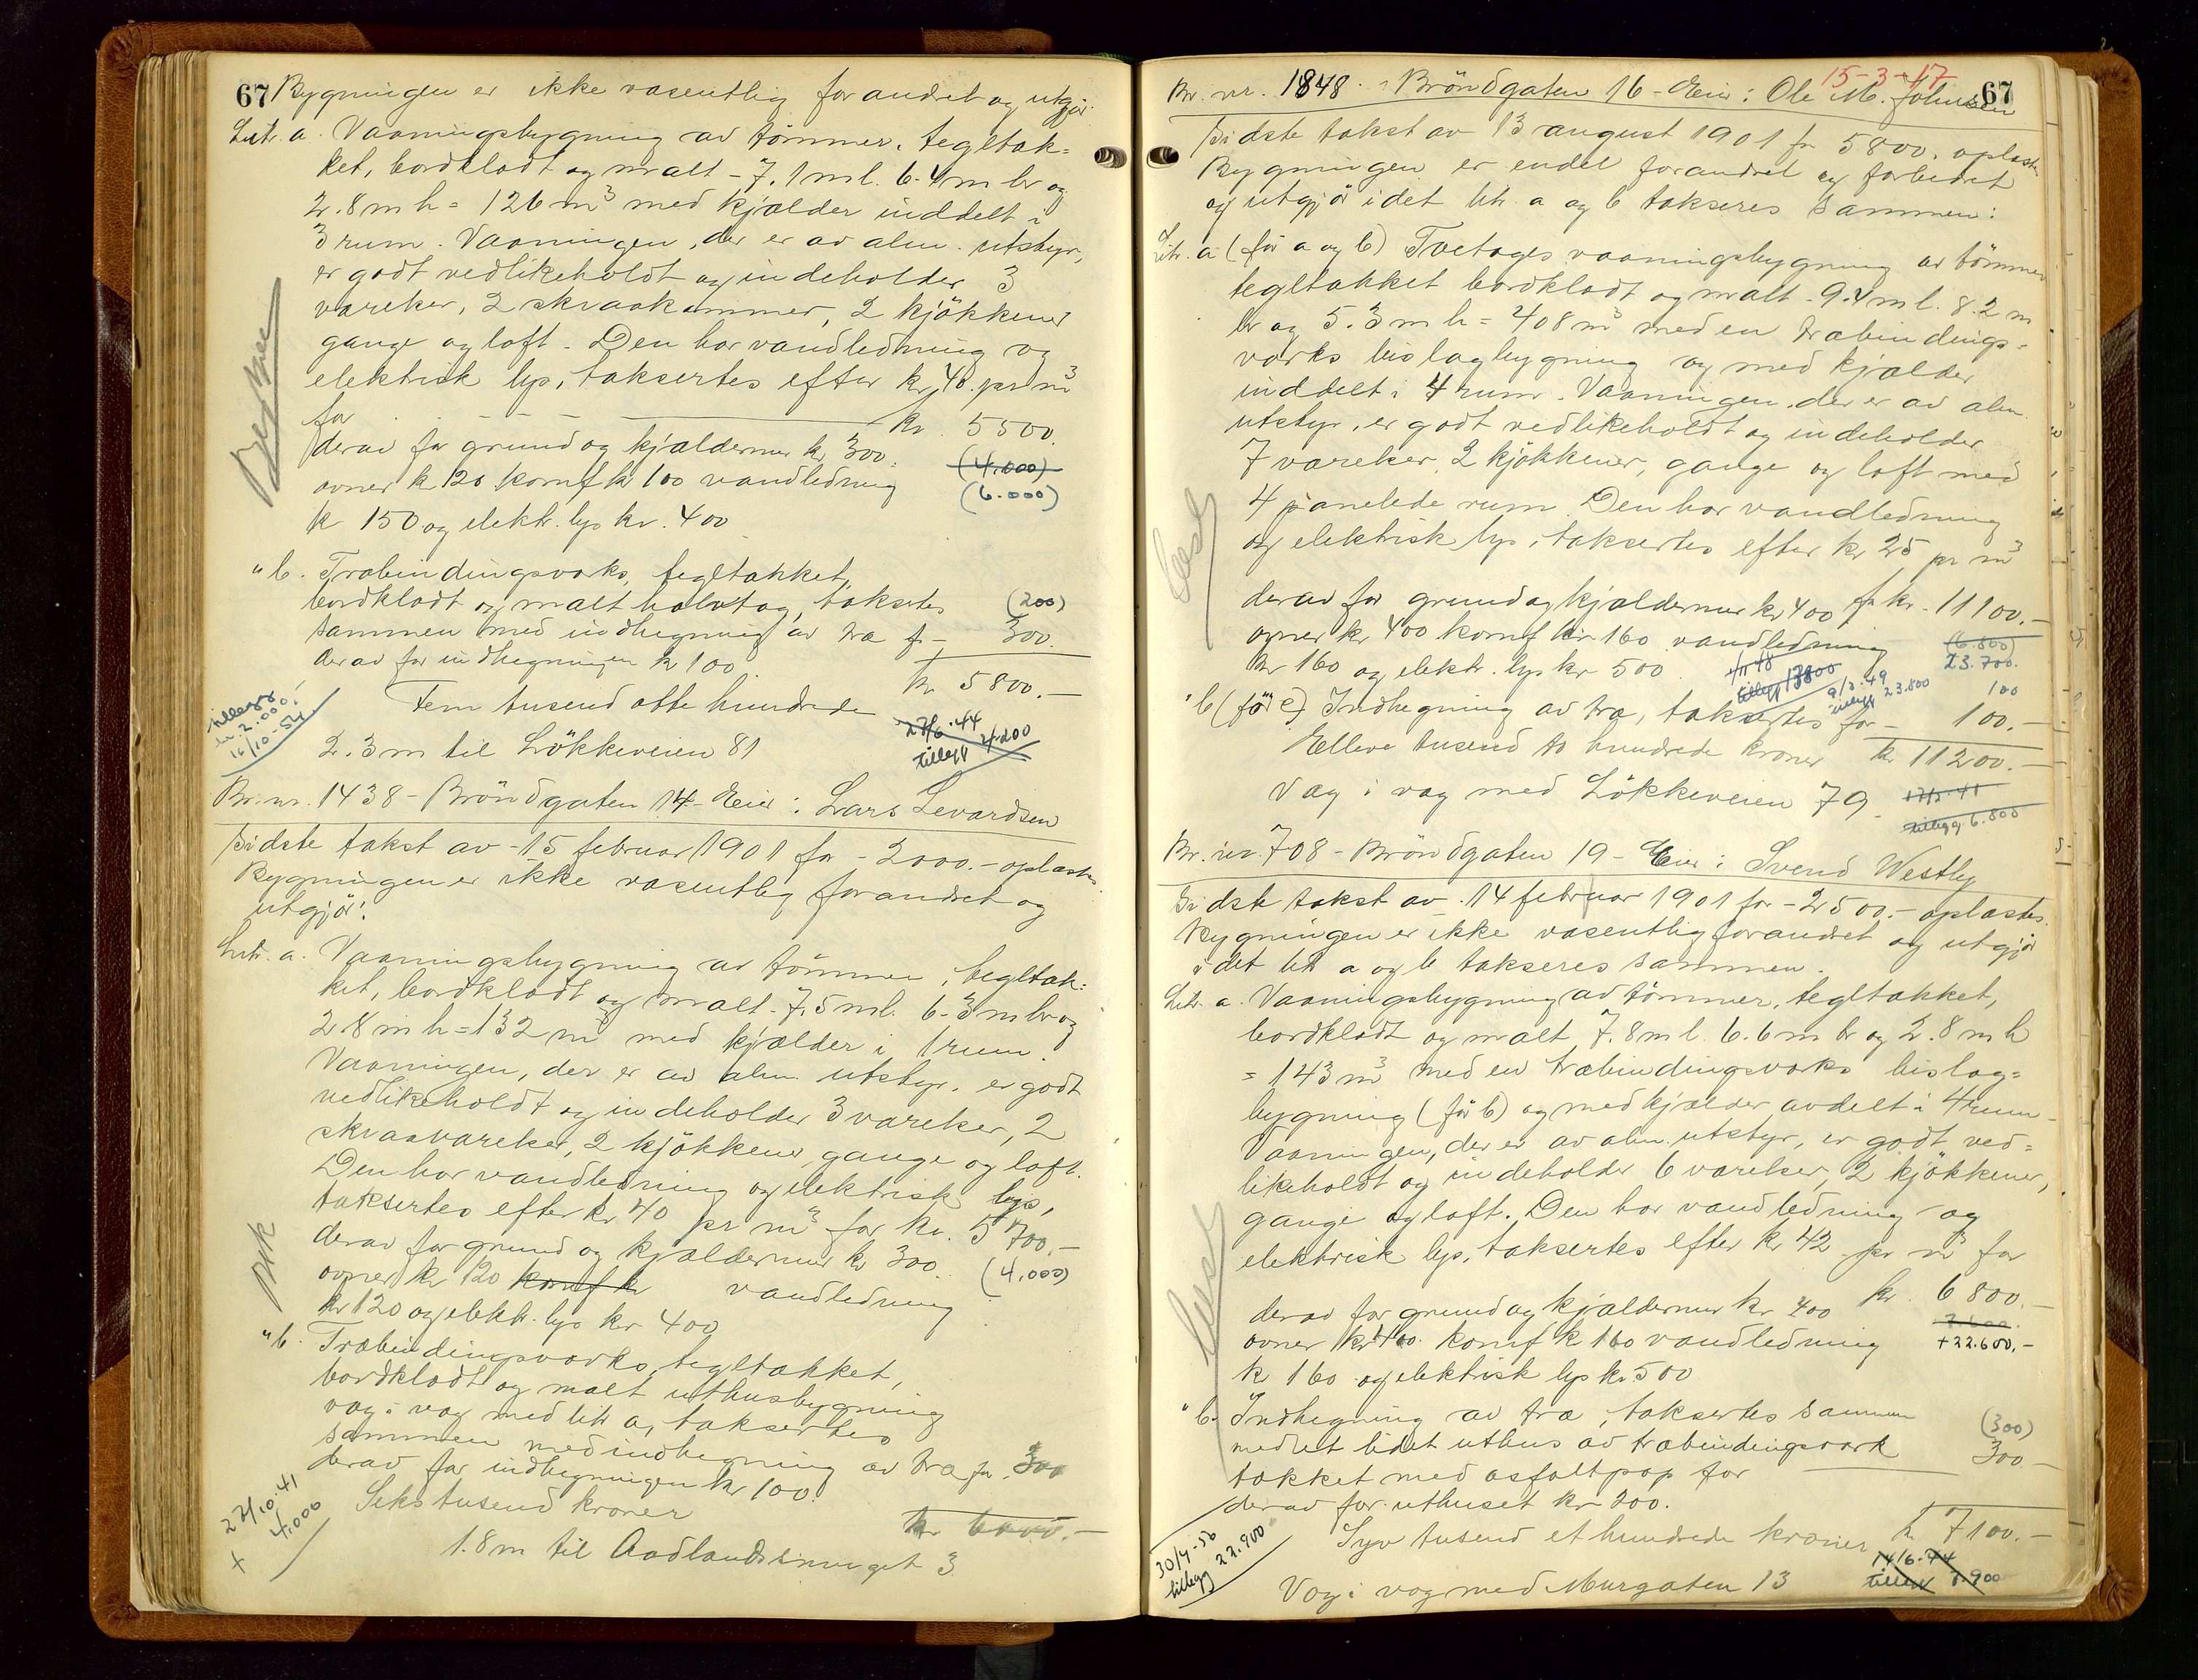 67 Bygningen er ikke væsentlig forandret og utgjör:
Litr. a. Vaaningsbygning av tömmer, tegltæk-
ket, bordklædt og malt - 7.1 m l. 6.4 m br og
2.8 m h = 126 m³ med kjælder inddelt i
3 rum. Vaaningen, der er av alm. utstyr,
er godt vedlikeholdt og indeholder 3
værelser, 2 skraakammer, 2 kjökkener
gange og loft. Den har vandledning og
elektrisk lys, taksertes efter kr 40. pr m³
for kr 5500.
derav for grund og kjældermur kr 300. (4.000)
ovner kr 120 komf kr 100 vandledning (6.000)
kr 150 og elektr. lys kr. 400
" b. Træbindingsværks, tegltækket,
bordklædt og malt halvtag, taksertes (200)
sammen med indhegning av træ fr - 300.
derav for indhegningen kr 100
kr 5800.-
Fem tusend otte hundrede
tillegg kr 2.000! 16/10-54
27/6.44 tillegg 4200
2.3 m til Lökkeveien 81
Br. nr. 1438 - Bröndgaten 14 - Eier: Lars Levardsen
Sidste takst av 15 februar 1901 for - 2000.- oplæstes.
Bygningen er ikke væsentlig forandret og
utgjör:
Litr. a. Vaaningsbygning av tömmer, tegltæk-
ket, bordklædt og malt - 7.5 m l. 6.3 m br og
2.8 m h = 132 m³ med kjælder i 1 rum.
Vaaningen, der er av alm. utstyr, er godt
vedlikeholdt og indeholder 3 værelser, 2
skraaværelser, 2 kjökkener, gange og loft.
Den har vandledning og elektrisk lys,
taksertes efter kr 40 pr m³ for kr. 5700.-
derav for grund og kjældermur kr 300. (4.000)
ovner kr 120 komf kr vandledning
kr 120 og elektr. lys kr 400
" b. Træbindingsværks, tegltækket,
bordklædt og malt uthusbygning
væg i væg med litr a, taksertes
sammen med indhegning av træ for 300
derav for indhegningen kr 100.
Seks tusend kroner kr 6000.-
22/10.41
+ 4.000
1.8 m til Aadlandssmuget 3
15-3-17
Br. nr. 1848. - Bröndgaten 16 - Eier: Ole M. Johnsen 67
Sidste takst av 13 august 1901 fr 5800. oplæstes
Bygningen er endel forandret og forbedret
og utgjör idet litr. a og b takseres sammen:
Litr. a (för a og b) Toetages vaaningsbygning av tömmer
tegltækket bordklædt og malt - 9.4 m l. 8.2 m
br og 5.3 m h = 408 m³ med en træbindings-
værks bislagbygning og med kjælder
inddelt i 4 rum. Vaaningen, der er av alm.
utstyr, er godt vedlikeholdt og indeholder
7 værelser 2 kjökkener, gange og loft med
4 panelede rum. Den har vandledning
og elektrisk lys, taksertes efter kr 25 pr m³
fr kr. 11100.-
derav for grund og kjældermur kr 400
ovner kr 400 komf kr 160 vandledning (6.800)
kr 160 og elektr. lys kr 500 23.700.
tillegg 13800
9/3.49 tillegg 23.800
100
" b (för c) Indhegning av træ, taksertes for - 100.-
Elleve tusend to hundrede kroner kr 11200.-
Væg i væg med Lökkeveien 79
tillegg 6.800
Br. nr. 708 - Bröndgaten 19 - Eier: Svend Westby
Sidste takst av 14 februar 1901 for - 2500.- oplæstes.
Bygningen er ikke væsentlig forandret og utgjör
idet litr a og b takseres sammen.
Litr. a. Vaaningsbygning av tömmer, tegltækket,
bordklædt og malt, 7.8 m l. 6.6 m br og 2.8 m h
= 143 m³ med en træbindingsværks bislag=
bygning (för b) og med kjælder avdelt i 4 rum
Vaaningen, der er av alm. utstyr, er godt ved=
likeholdt og indeholder 6 værelser, 2 kjökkener,
gange og loft. Den har vandledning og
elektrisk lys, taksertes efter kr 42 pr m³ for
kr. 6800.-
derav for grund og kjældermur kr 400
ovner kr 400. komf kr 160 vandledning +22.600.-
kr 160 og elektrisk lys kr. 500
" b. Indhegning av træ, taksertes sammen (300)
med et lidet uthus av træbindingsværk 300.-
tækket med asfaltpap for
derav for uthuset kr 200.
Syv tusend et hundrede kroner kr 7100.-
30/4-56 tillegg 22.900
14/6-44 tillegg 7.900
Væg i væg med Murgaten 13